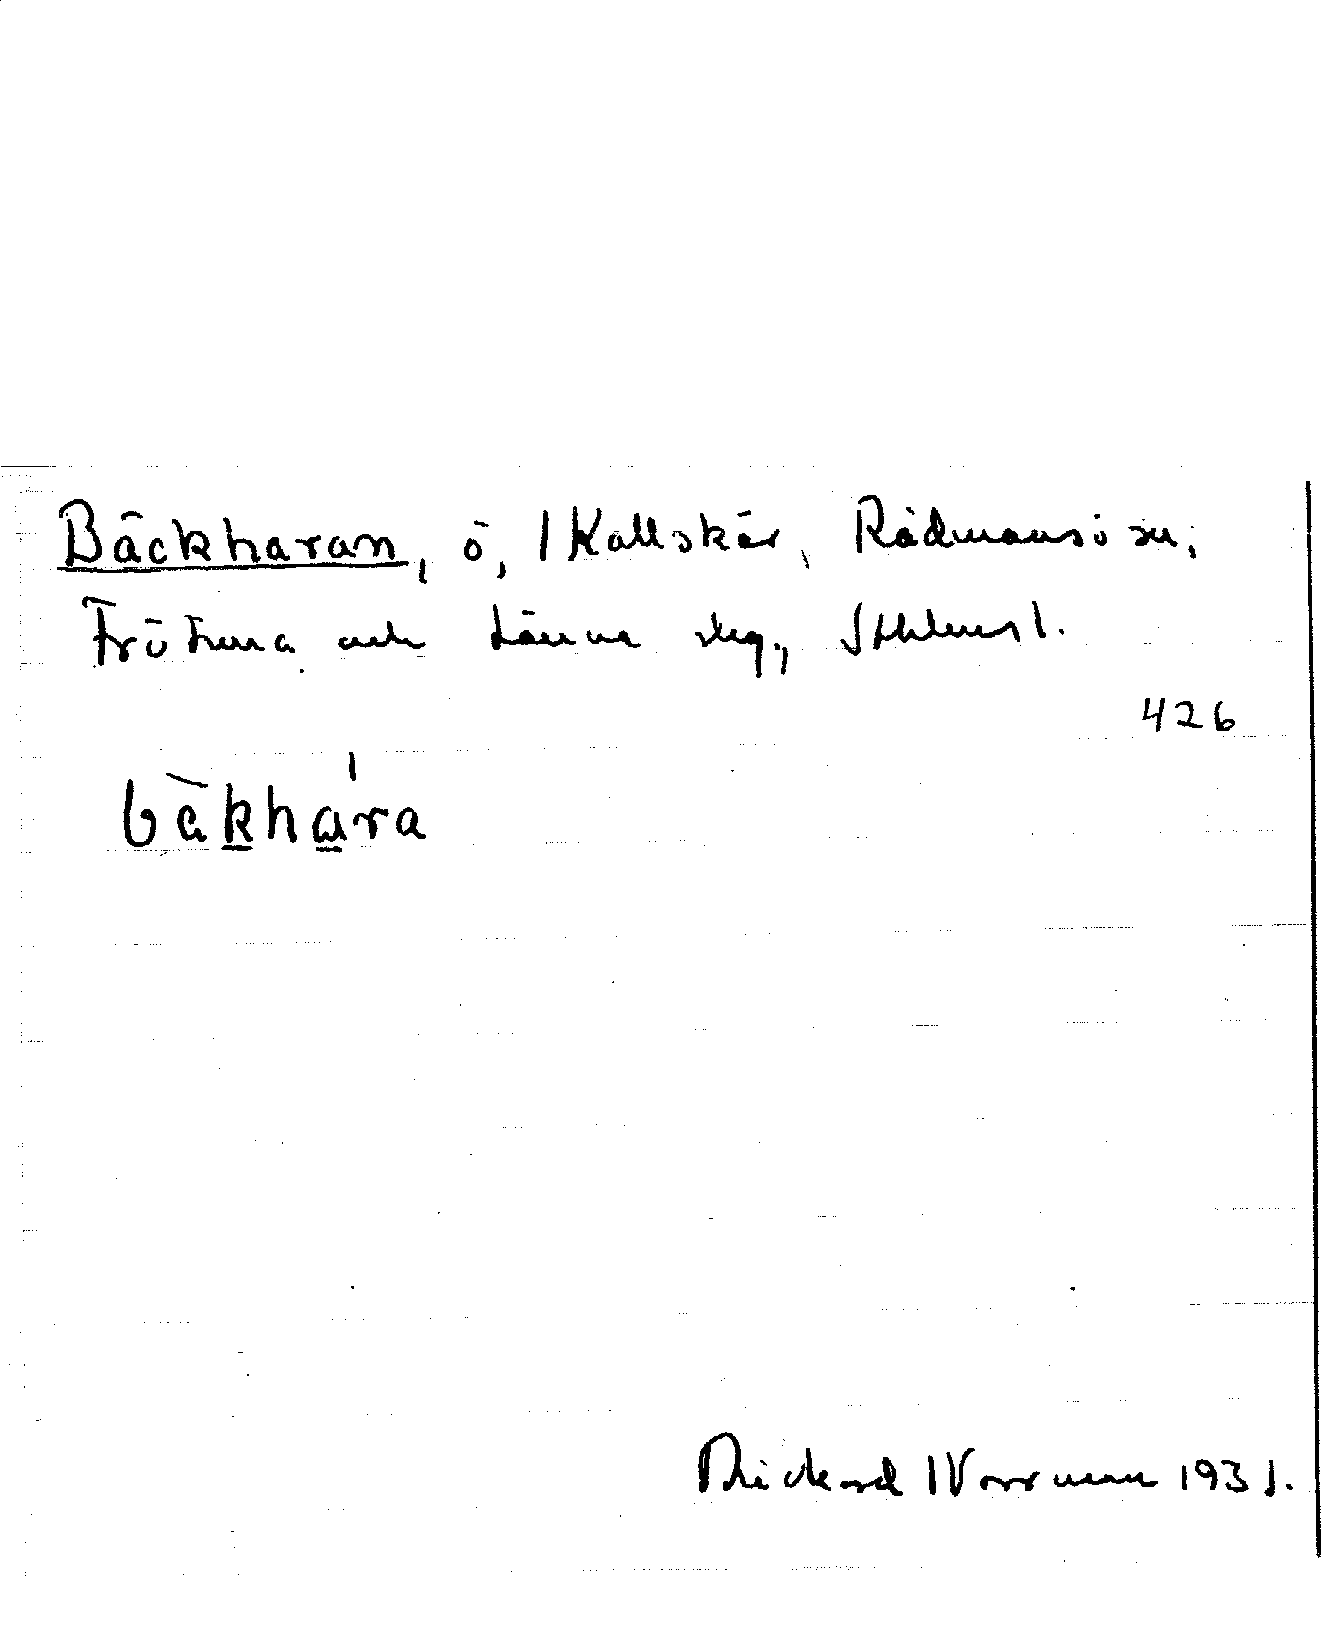 Bäckharan, ö, /Kallskär, Rådmansö sn,
Frötuna och Länna skg., Sthlms l.
426
bäkhára
Rickard Norrman 1931.